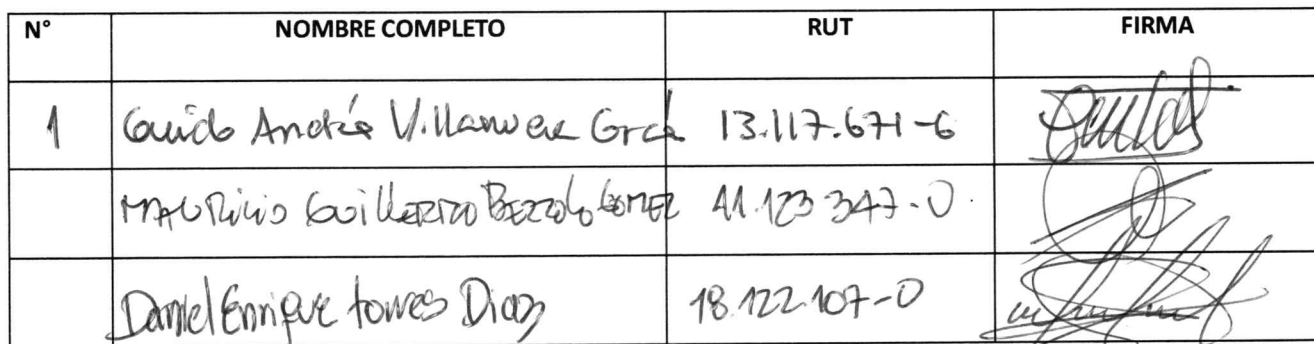 N° NOMBRE COMPLETO RUT FIRMA
1 Guido Andrés Villanueva 13.117.671-6
MAURICIO Guillermo GOMEZ 11.123.347-0
Daniel Enrique torres Diaz 18.122.107-0